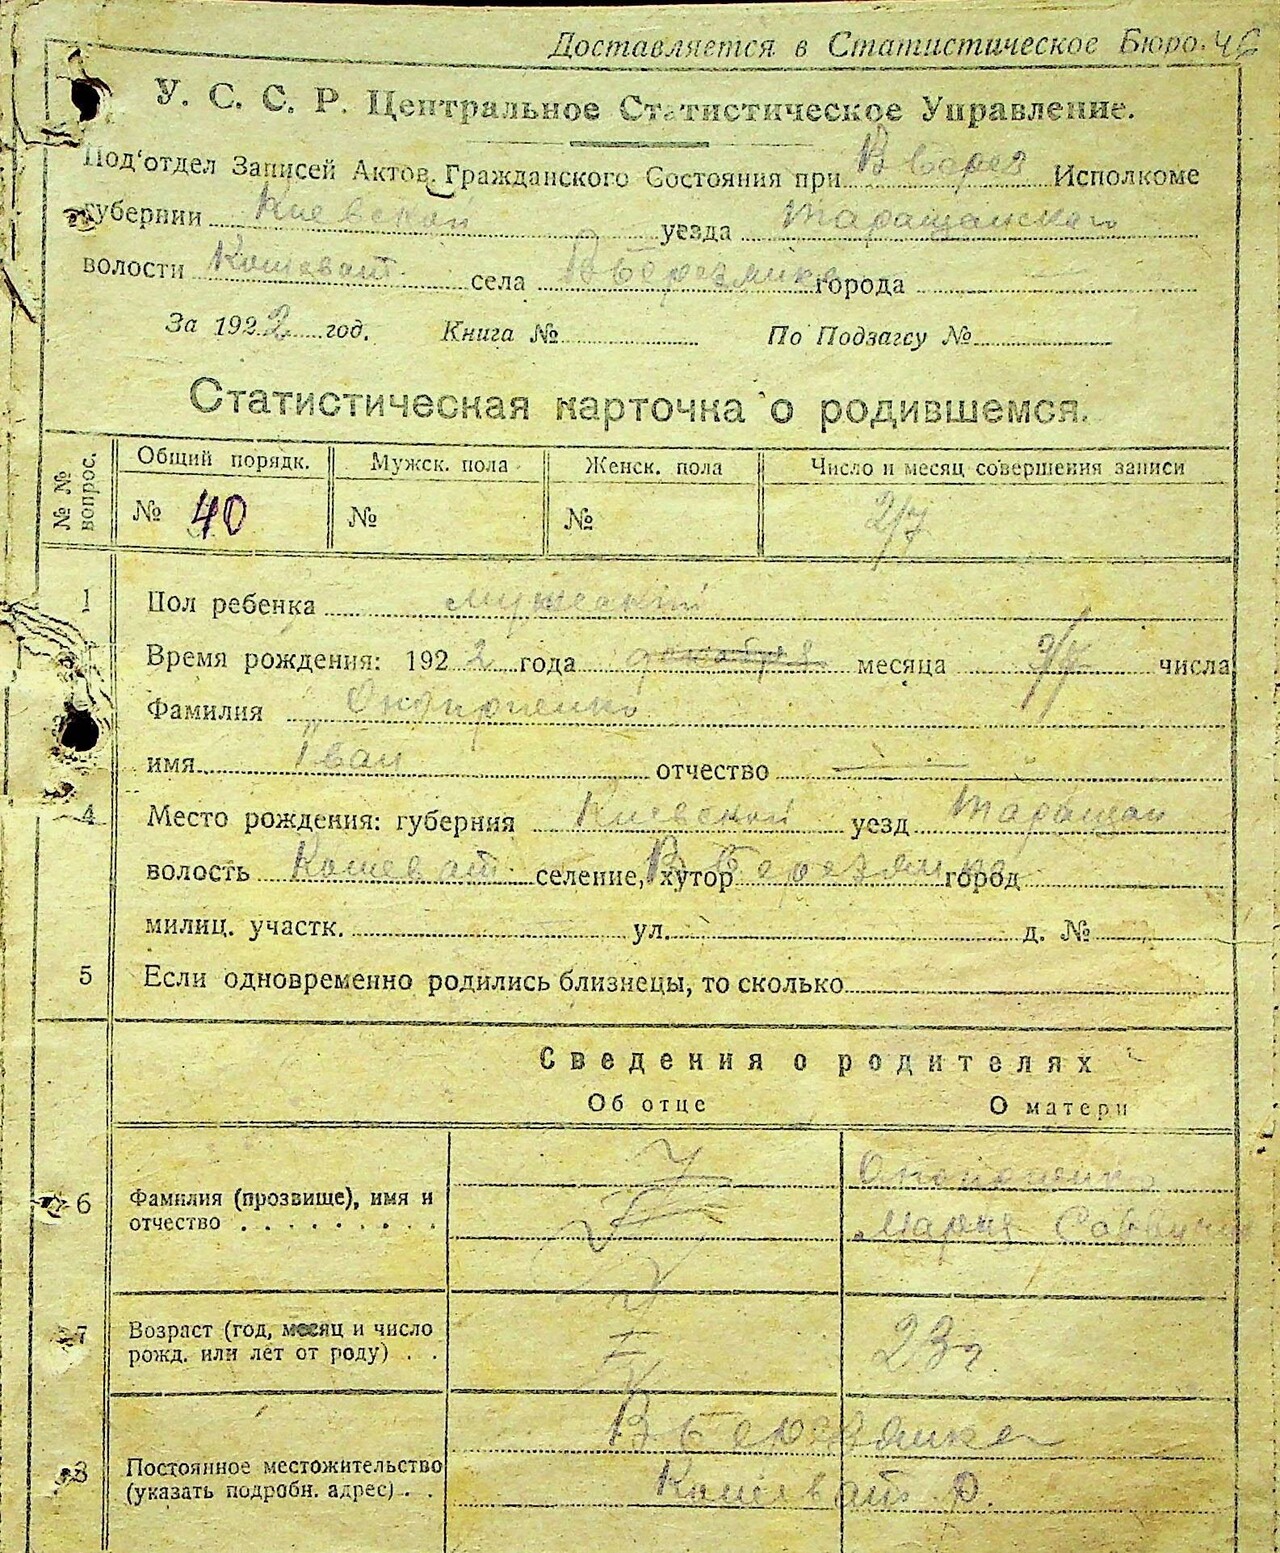 Доставляется в Статистическое Бюро. 46
У. С. С. Р. Центральное Статистическое Управление.
Под'отдел Записей Актов Гражданского Состояния при В Берез Исполкоме
губернии Киевской уезда Таращанского
волости Кошеват. села В Березянка города
За 1922 год. Книга № По Подзагсу №
Статистическая карточка о родившемся.
№ № вопрос. Общий порядк. Мужск. пола Женск. пола Число и месяц совершения записи
№ 40 № № 2/7
1 Пол ребенка мужеский
Время рождения: 1922 года месяца числа
Фамилия
имя Іван отчество
4 Место рождения: губерния Киевской уезд Таращан
волость Кошеват селение, хутор В Березянка город
милиц. участк. ул. д. №
5 Если одновременно родились близнецы, то сколько
Сведения о родителях
Об отце О матери
6 Фамилия (прозвище), имя и отчество Мария
7 Возраст (год, месяц и число рожд. или лет от роду) 23 г.
8 Постоянное местожительство (указать подробн. адрес) В Березянка
Кошеват р.